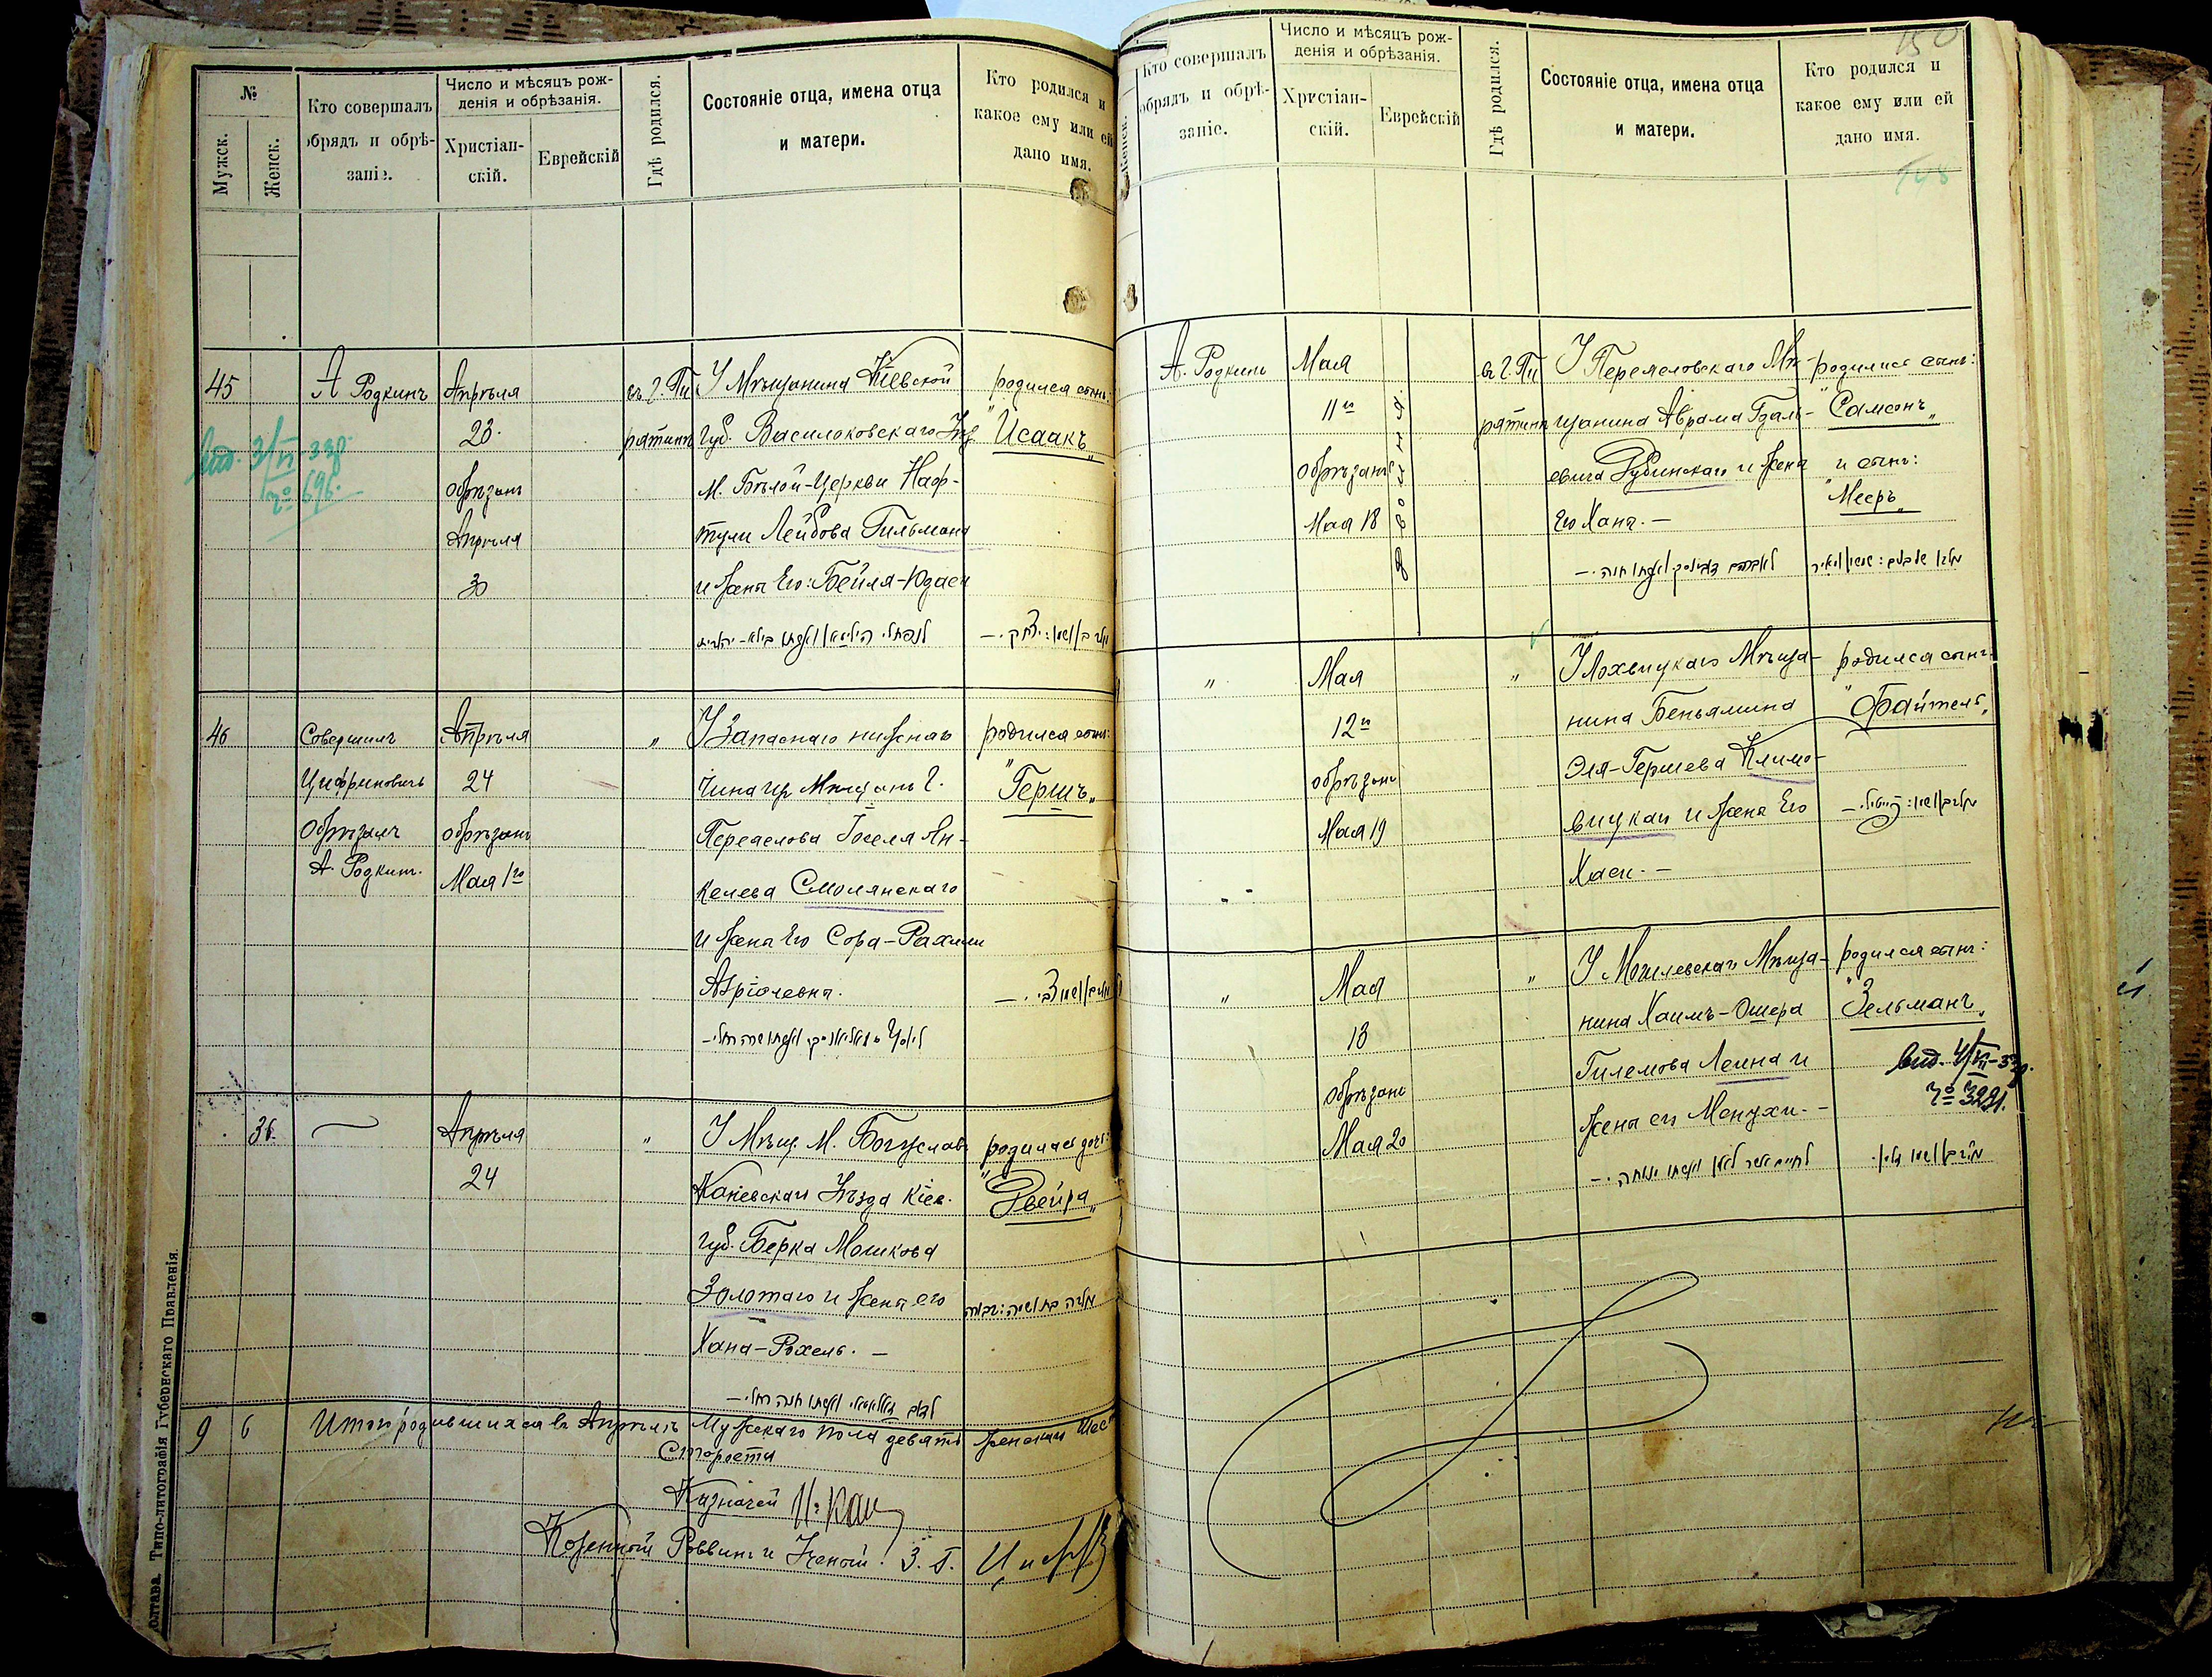 №
Мужск.
Женск.
Кто совершалъ
обрядъ и обрѣ-
заніе.
Число и мѣсяцъ рож-
денія и обрѣзанія.
Христіан-
скій.
Еврейскій
Гдѣ родился.
Состояніе отца, имена отца
и матери.
Кто родился и
какое ему или ей
дано имя.
45
А Родкинъ
Апрѣля
23.
обрѣзанъ
Апрѣля
30
въ г. Пи
рятинѣ
У Мѣщанина Кіевской
губ. Василковскаго
М. Бѣлой-Церкви Наф-
тули Лейбова Гильмана
и жена Его: Бейля-Юдаси
родился сынъ:
"Исаакъ"
вид. 3/VI-33г.
№ 696.
46
Совершилъ
Цифриновичъ
Обрѣзалъ
А. Родкинъ.
Апрѣля
24
обрѣзанъ
Мая 1го
"
У Запаснаго нижняго
чина изъ Мѣщанъ г.
Переяслова Іоселя Ян-
келева Смолянскаго
и жена Его Сора-Рахили
Азріолевна.
родился сынъ:
"Гершъ"
36.
Апрѣля
24
"
У Мѣщ. М. Богуслав.
Каневскаго Уѣзда Кіев.
губ. Берка Мошкова
Золотаго и жена его
Хана-Рохель. —
родилась дочь:
"Рвейра"
9 6 Итого родившихся въ Апрѣлѣ Мужскаго пола девять женскаго шес
Староста
Казначей
Козенный Раввинъ и Ученый З. Г.
Полтава. Типо-литографія Губернскаго Правленія.
150
148
Женск.
Кто совершалъ
обрядъ и обрѣ-
заніе.
Число и мѣсяцъ рож-
денія и обрѣзанія.
Христіан-
скій.
Еврейскій
Гдѣ родился.
Состояніе отца, имена отца
и матери.
Кто родился и
какое ему или ей
дано имя.
А. Родкинъ
Мая
11го
обрѣзаны
Мая 18
двойня.
въ г. Пи
рятинѣ
У Переясловскаго Мѣ-
щанина Аврама Гдаль-
евича Рубинскаго и жена
Его Хана. —
родился сынъ:
"Самсонъ"
и сынъ:
"Мееръ"
"
Мая
12го
обрѣзанъ
Мая 19
"
У Лохвицкаго Мѣща-
нина Беньямина
Эля-Гершева Климо-
вицкаго и жена Его
Хаси. —
родился сынъ:
"Файтель"
"
Мая
13
обрѣзанъ
Мая 20
"
У Могилевскаго Мѣща-
нина Хаимъ-Ошера
Гилемова Леина и
жена его Менухи. —
родился сынъ:
"Зельманъ"
вид. 4/VII-33г.
№ 3221.